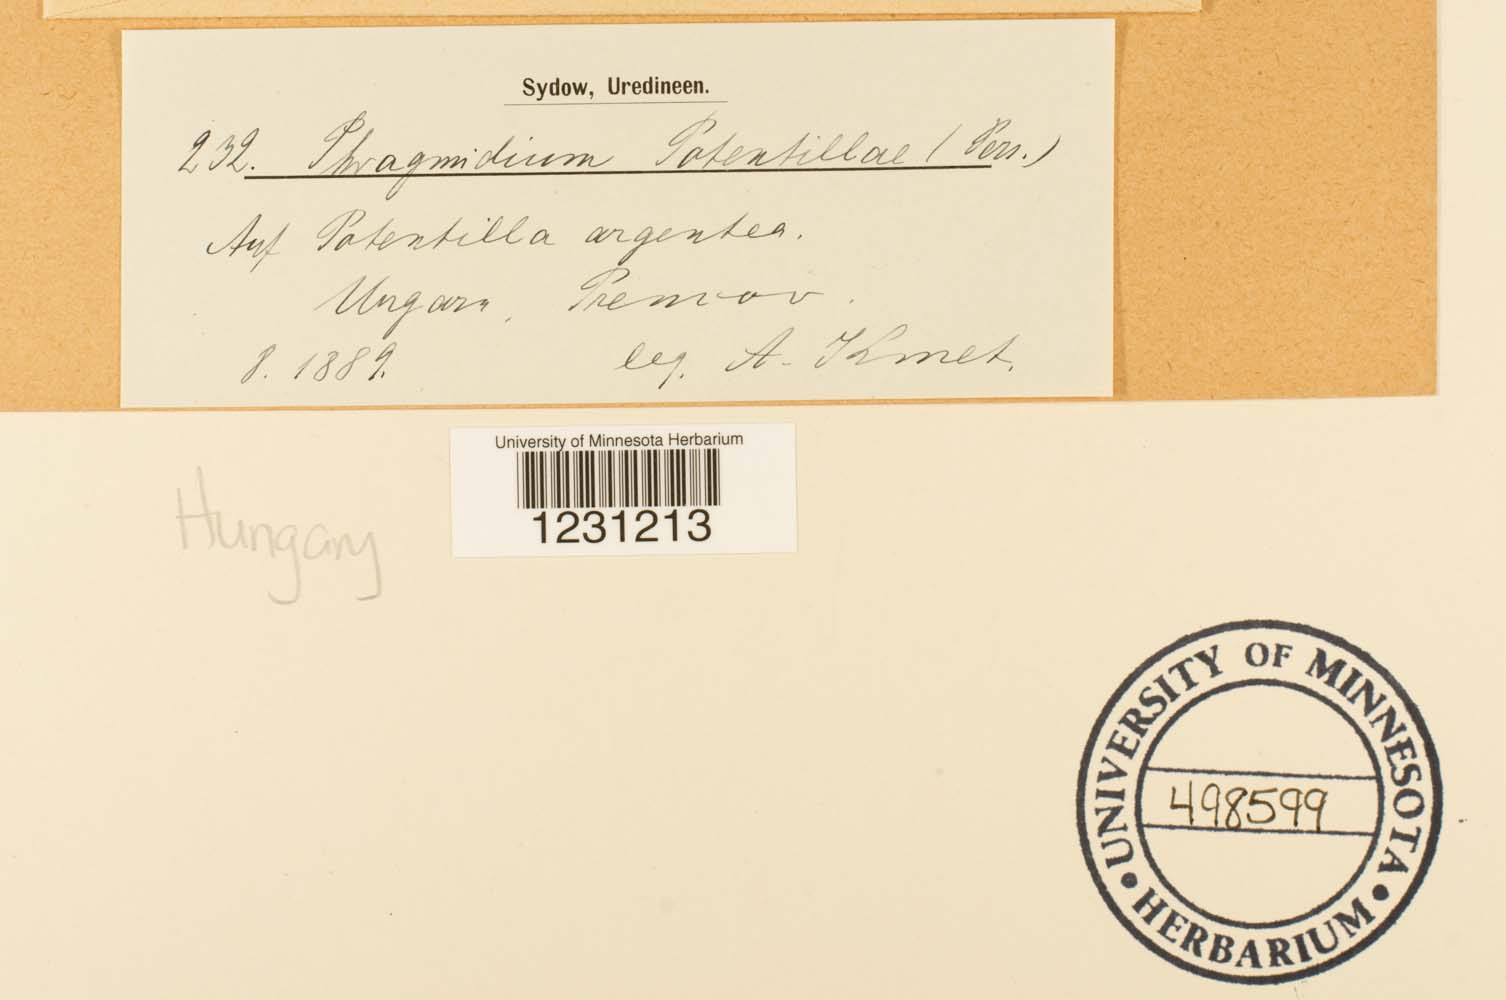 Sydow, Uredineen.
232. Phragmidium Potentillae (Pers.)
Auf Potentilla argentea.
Ungarn, Prencov.
8. 1889. leg. A. Kmet.
University of Minnesota Herbarium
1231213
Hungary
UNIVERSITY OF MINNESOTA
498599
• HERBARIUM •